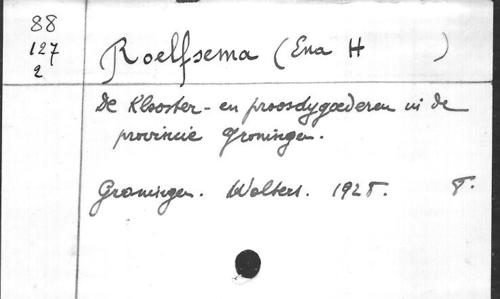 88
127
2
Roelfsema (Ena H )
De Klooster- en proosdygoederen in de
provincie Groningen.
Groningen. Wolters. 1928. 8.